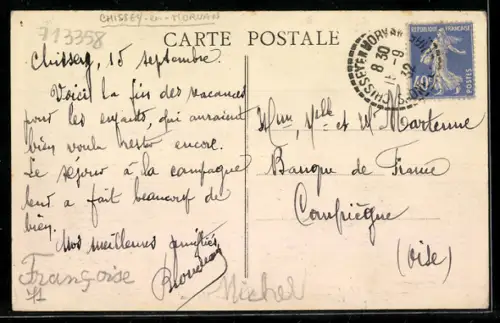 CHISSEY-en-MORVAN
713358
CARTE POSTALE
Chissey, 15 septembre.
Voici la fin des vacances
pour les enfants, qui auraient
bien voulu rester encore.
Le séjour à la campagne
leur a fait beaucoup de
bien.
Nos meilleures amitiés
Françoise
Michel
CHISSEY EN MORVAN
8 30
15 - 9
32
REPUBLIQUE FRANÇAISE
POSTES
Mme, Mlle et Mr
Banque de France
Compiègne
(Oise)